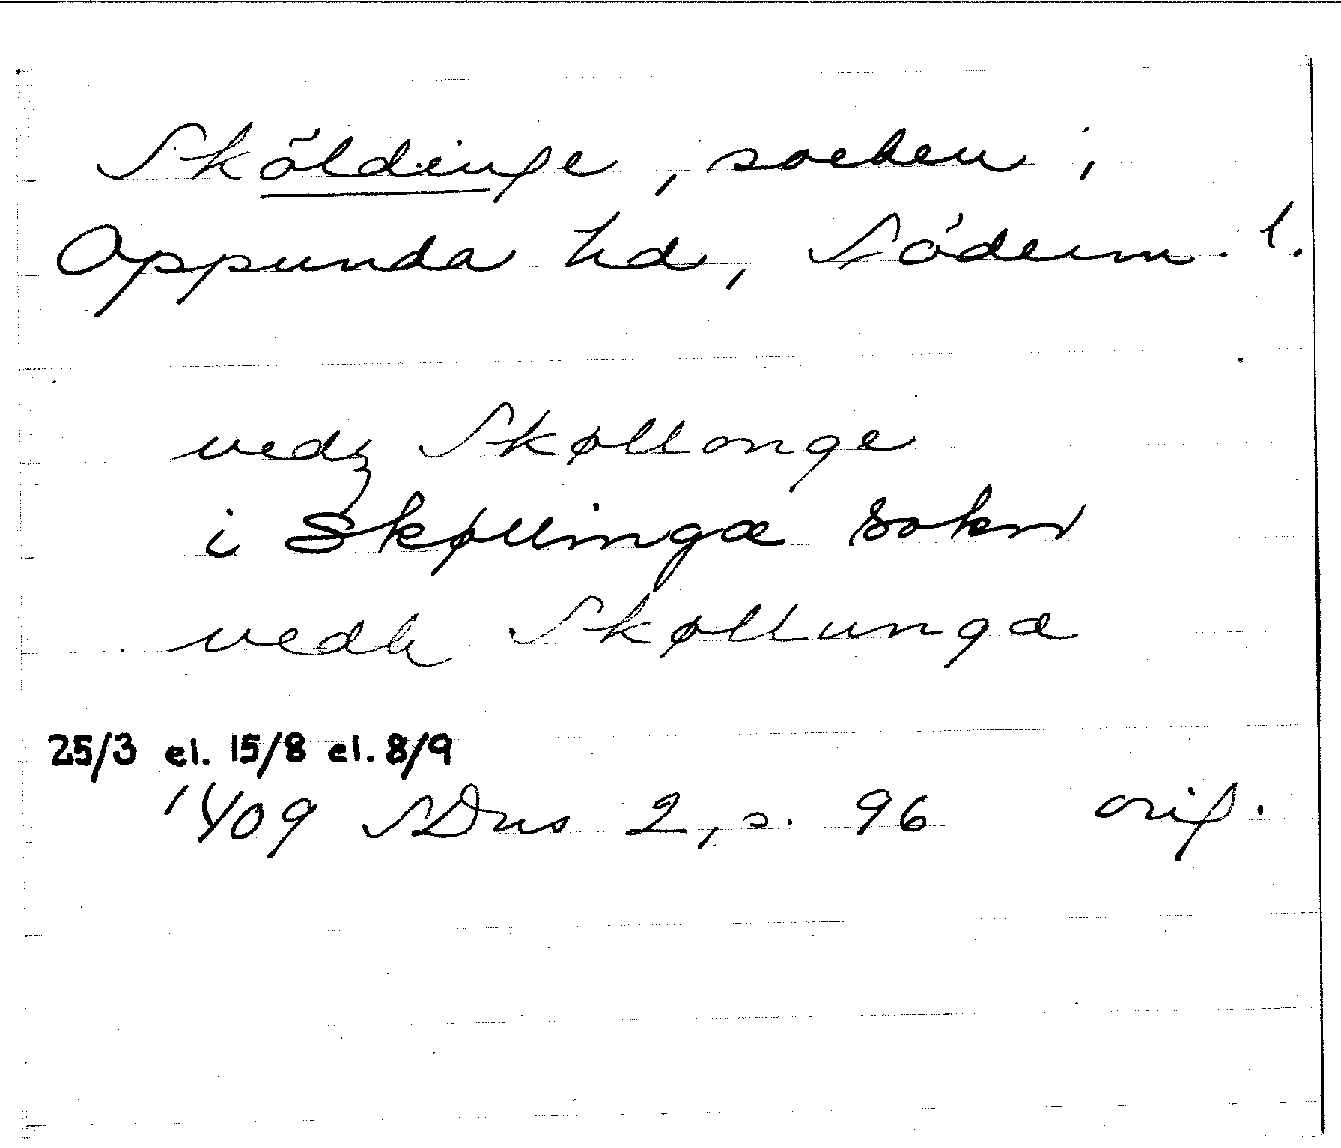 Sköldinge, socken i
Oppunda hd, Söderm. l.
vedz Skøllonge
i Skøllinga sokn
vedh Skøllunga
25/3 el. 15/8 el. 8/9
1409 SDns 2, s. 96 orig.